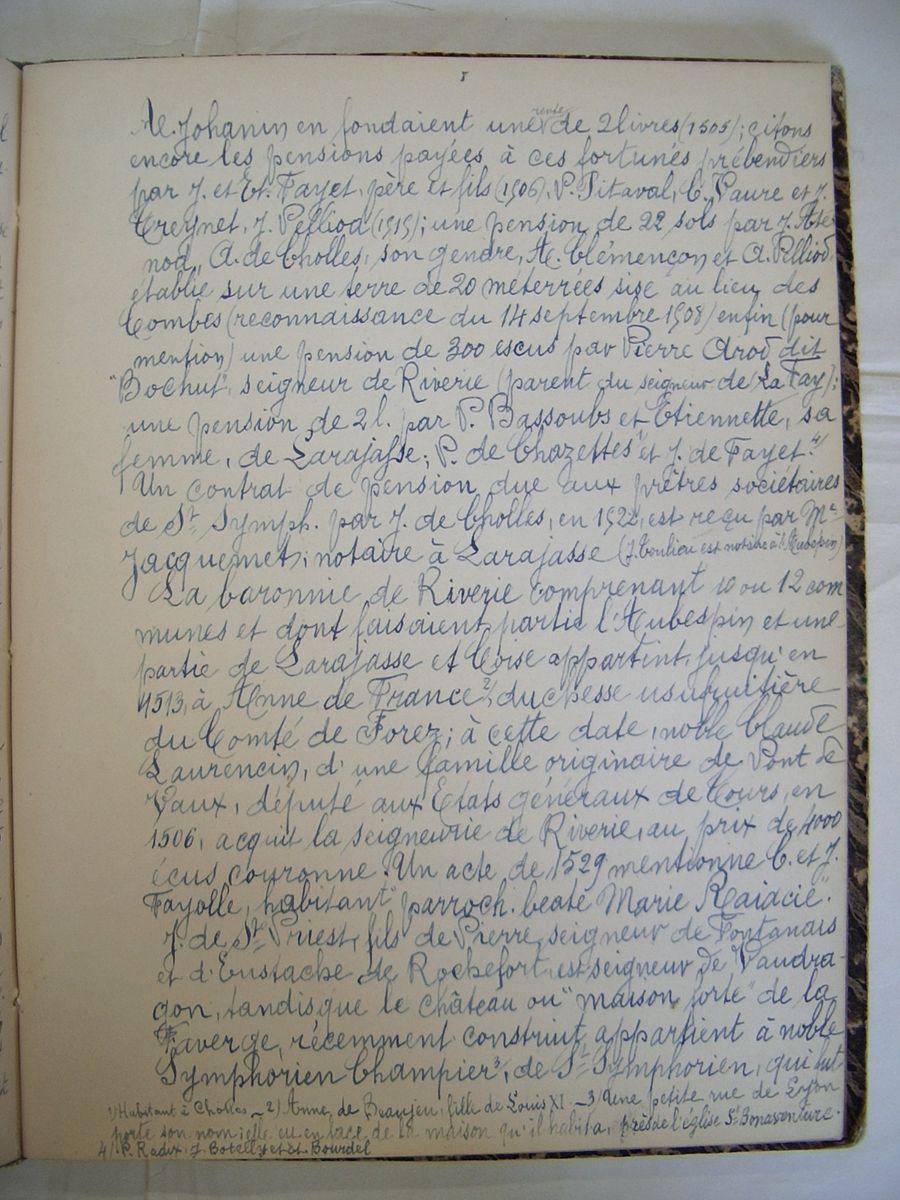 M. Johanin en fondaient une rente de 2 livres (1505); citons
encore les pensions payées à ces fortunés prébendiers
par J. et Et. Fayet, père et fils (1506), P. Pitaval, C. Vaure et J.
Creynet, J. Pelliod (1515); une pension de 22 sols par J.
nod, A. de Cholles, son gendre, M. Clémençon et A. Pelliod,
établie sur une terre de 20 méterrées sise au lieu des
Combes (reconnaissance du 14 septembre 1508) enfin (pour
mention) une pension de 300 escus par Pierre Arod dit
"Bochut", seigneur de Riverie (parent du seigneur de La Fay);
une pension de 2 l. par P. Bassoubs et Etiennette, sa
femme, de Larajasse; P. de Chazettes 1) et J. de Fayet. 4)
Un contrat de pension due aux prêtres sociétaires
de St. Symph. par J. de Cholles, en 1522, est reçu par Me
Jacquemet, notaire à Larajasse (J. est notaire à l'Aubépin)
La baronnie de Riverie comprenant 10 ou 12 com
munes et dont faisaient partie l'Aubespin et une
partie de Larajasse et Coise appartint, jusqu'en
1513, à Anne de France 2), duchesse usufruitière
du Comté de Forez; à cette date, noble Claude
Laurencin, d'une famille originaire de Pont de
Vaux, député aux Etats généraux de Tours, en
1506, acquit la seigneurie de Riverie, au prix de 4000
écus couronne. Un acte de 1529 mentionne C. et J.
Fayolle, habitant "parroch. beate Marie Raiacie".
J. de St. Priest, fils de Pierre, seigneur de Fontanais
et d'Eustache de Rochefort, est seigneur de Vaudra-
gon, tandis que le château ou "maison forte" de la
Faverge, récemment construit, appartient à noble
Symphorien Champier 3), de St. Symphorien, qui fut
1) Habitant à Cholles _ 2) Anne de Beaujeu, fille de Louis XI. _ 3) Une petite rue de Lyon
porte son nom; elle est en face de la maison qu'il habita, près de l'église St Bonaventure.
4) P. Radix, J. et Et. Bourdel